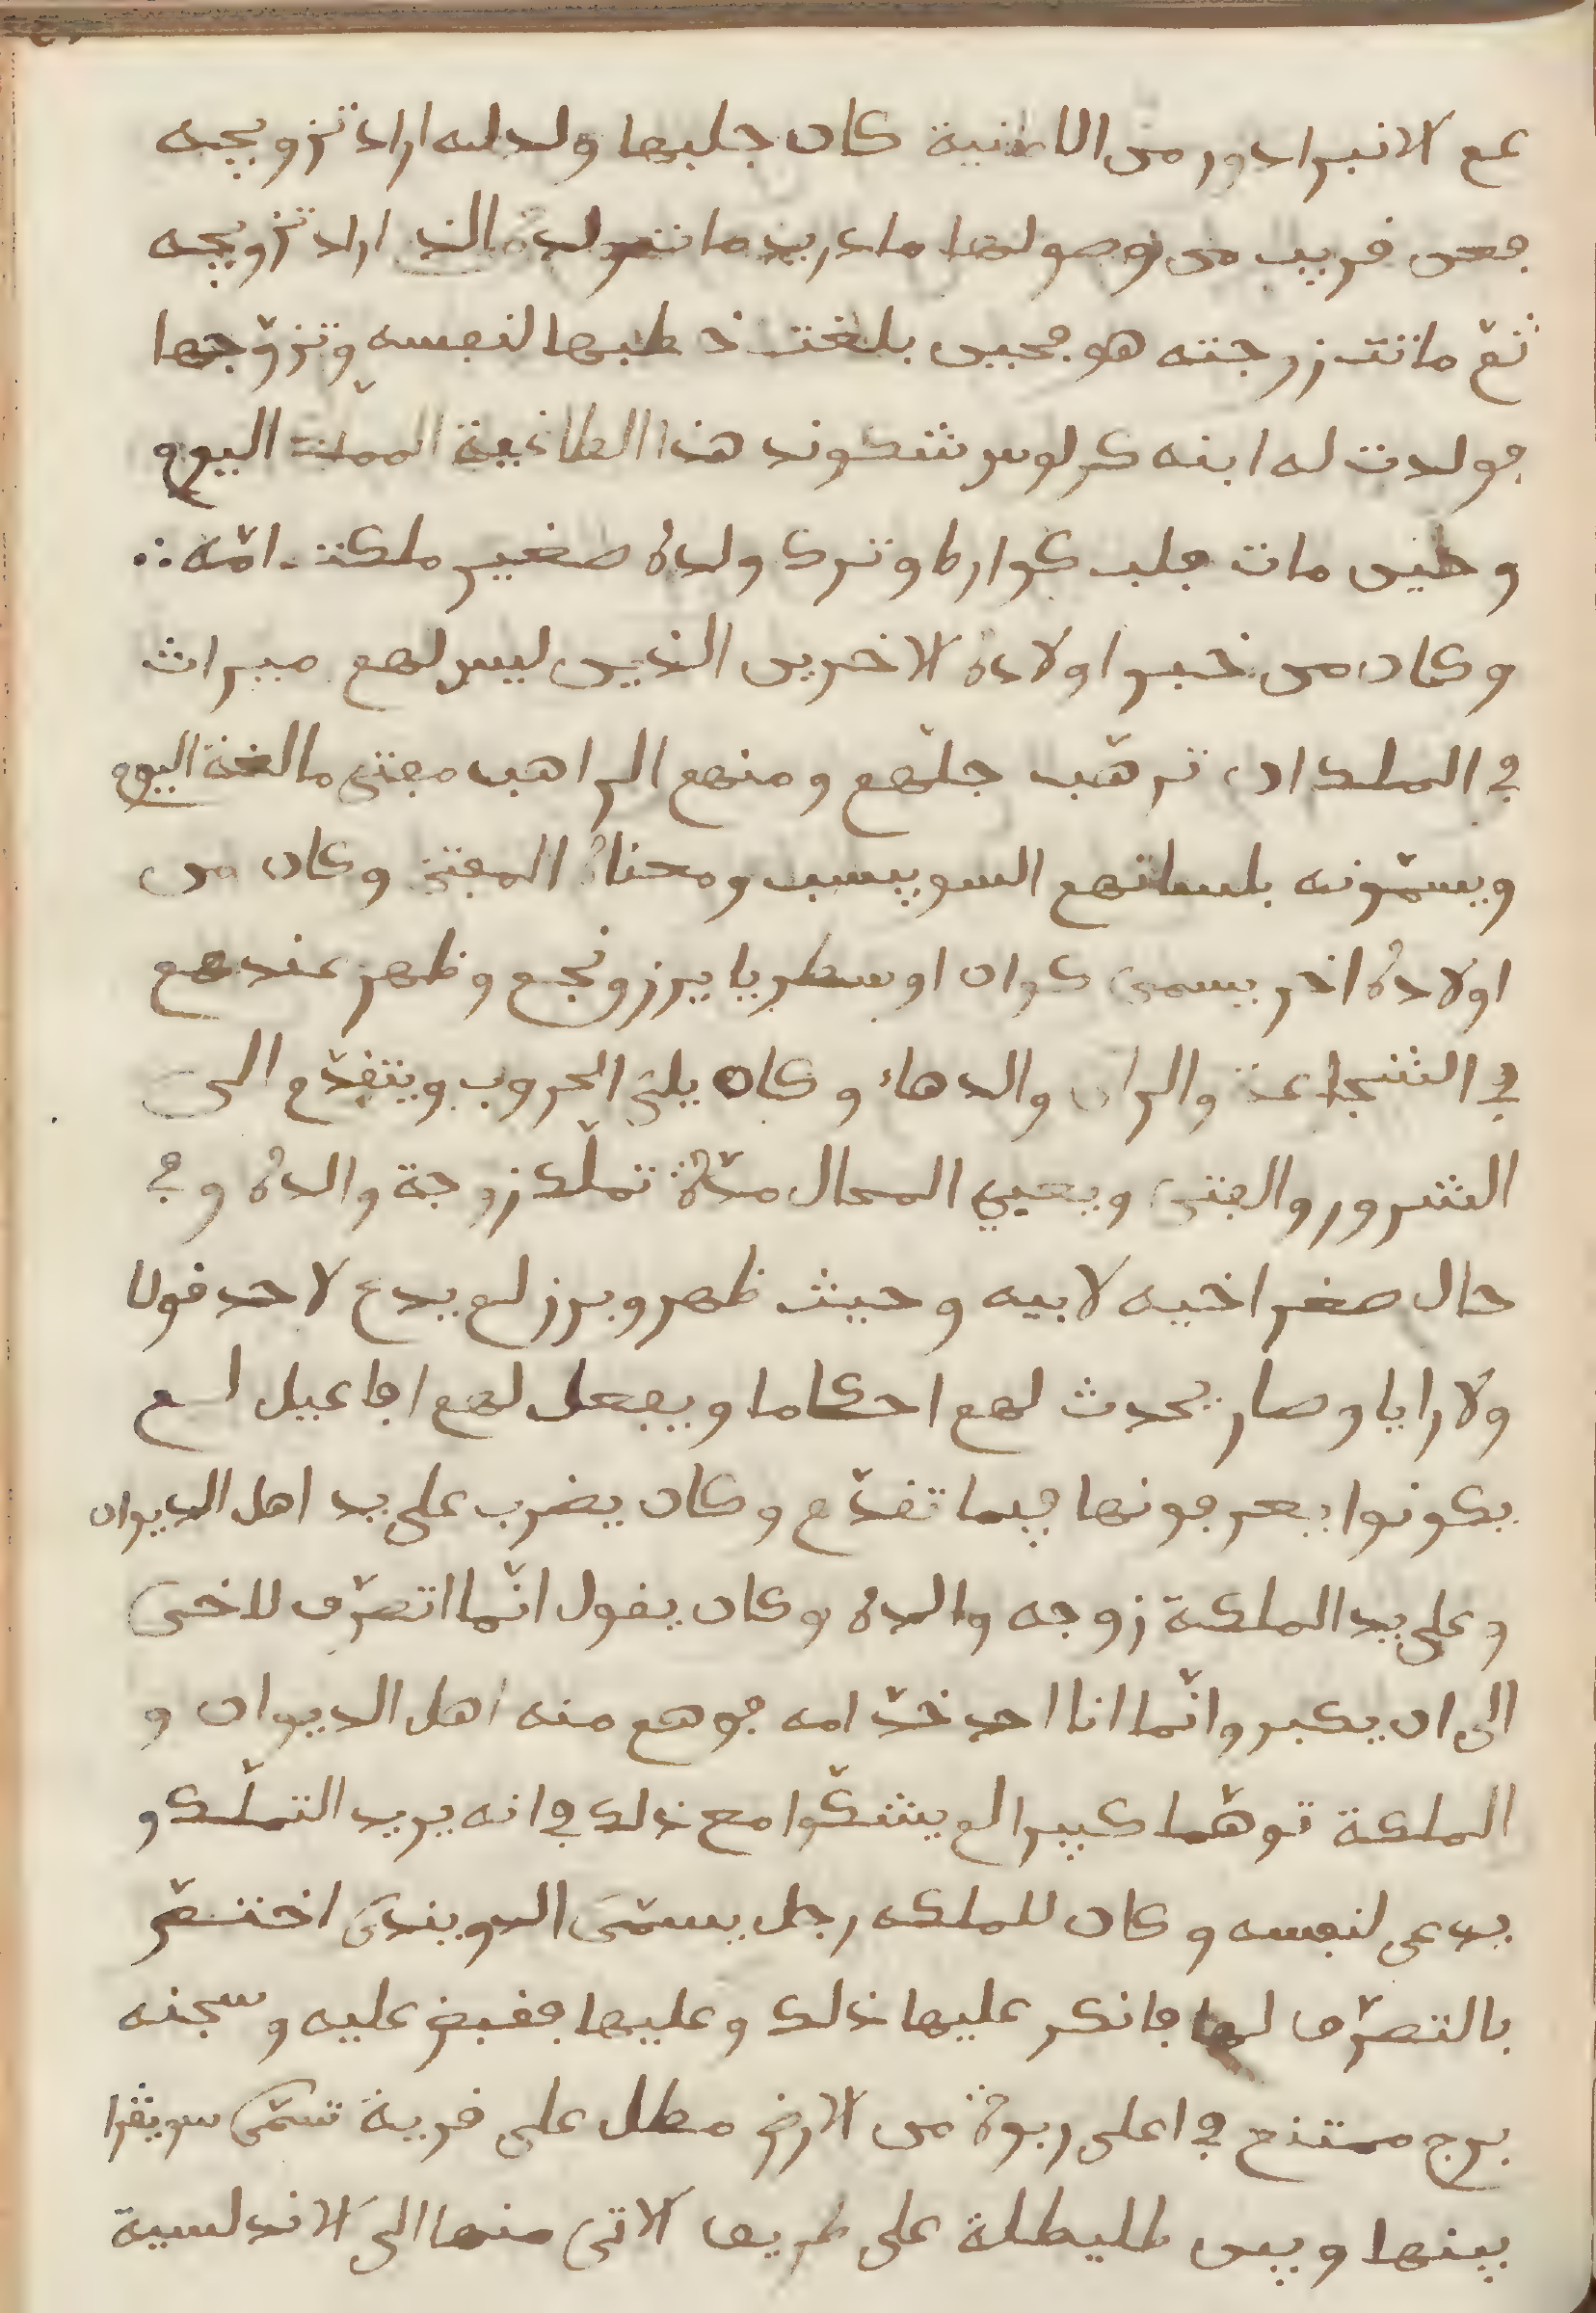 عم الانبرادور من الامانية كان جلبها ولد له اراد تزويجه
فعن قريب من وصولها مادريد مات ولده الذ اراد تزويجه
ثم ماتت زوجته هو فحين بلغت خطبها لنفسه وتزوجها
فولدت له ابنه كرلوس شكوند هذا الطاغية اليوم
وحين مات فلب كوارط وترك ولده صغير ملكت امه ∴
وكان من خبر اولاده الاخرين الذين ليس لهم ميراث
في الملك ان ترهب جلهم ومنهم الراهب مفتي مالغة اليوم
ويسمونه بلسانهم السوبيسب ومعناه المفتي وكان من
اولاده اخر يسمى كوان اوسطريا برز ونجم وظهر عندهم
في الشجاعة والراي والدهاء وكان يلي الحروب ويتقدم الى
الشرور والفتى ويعيي المحال مدة تملك زوجة والده وفي
حال صغر اخيه لابيه وحيث ظهر وبرز لم يدع لاحد قولا
ولا رايا وصار يحدث لهم احكاما ويفعل لهم افاعيل لم
يكونوا يعرفونها فيما تقدم وكان يضرب على يد اهل الديوان
وعلى يد الملكة زوجه والده وكان يقول انما اتصرف لاخى
الى ان يكبر وانما انا احد خدامه فوهم منه اهل الديوان و
الملكة توهما كبيرا لم يشكوا مع ذلك في انه يريد التملك و
يدعى لنفسه وكان للملكه رجل يسمى الدويندى اختص
بالتصرف لها فانكر عليها ذلك وعليها فقبض عليه وسجنه
ببرج ممتنع في اعلى ربوة من الارض مطل على قرية تسمى سويقرا
بينها وبين طليطلة على طريق الاتى منها الى الاندلسية